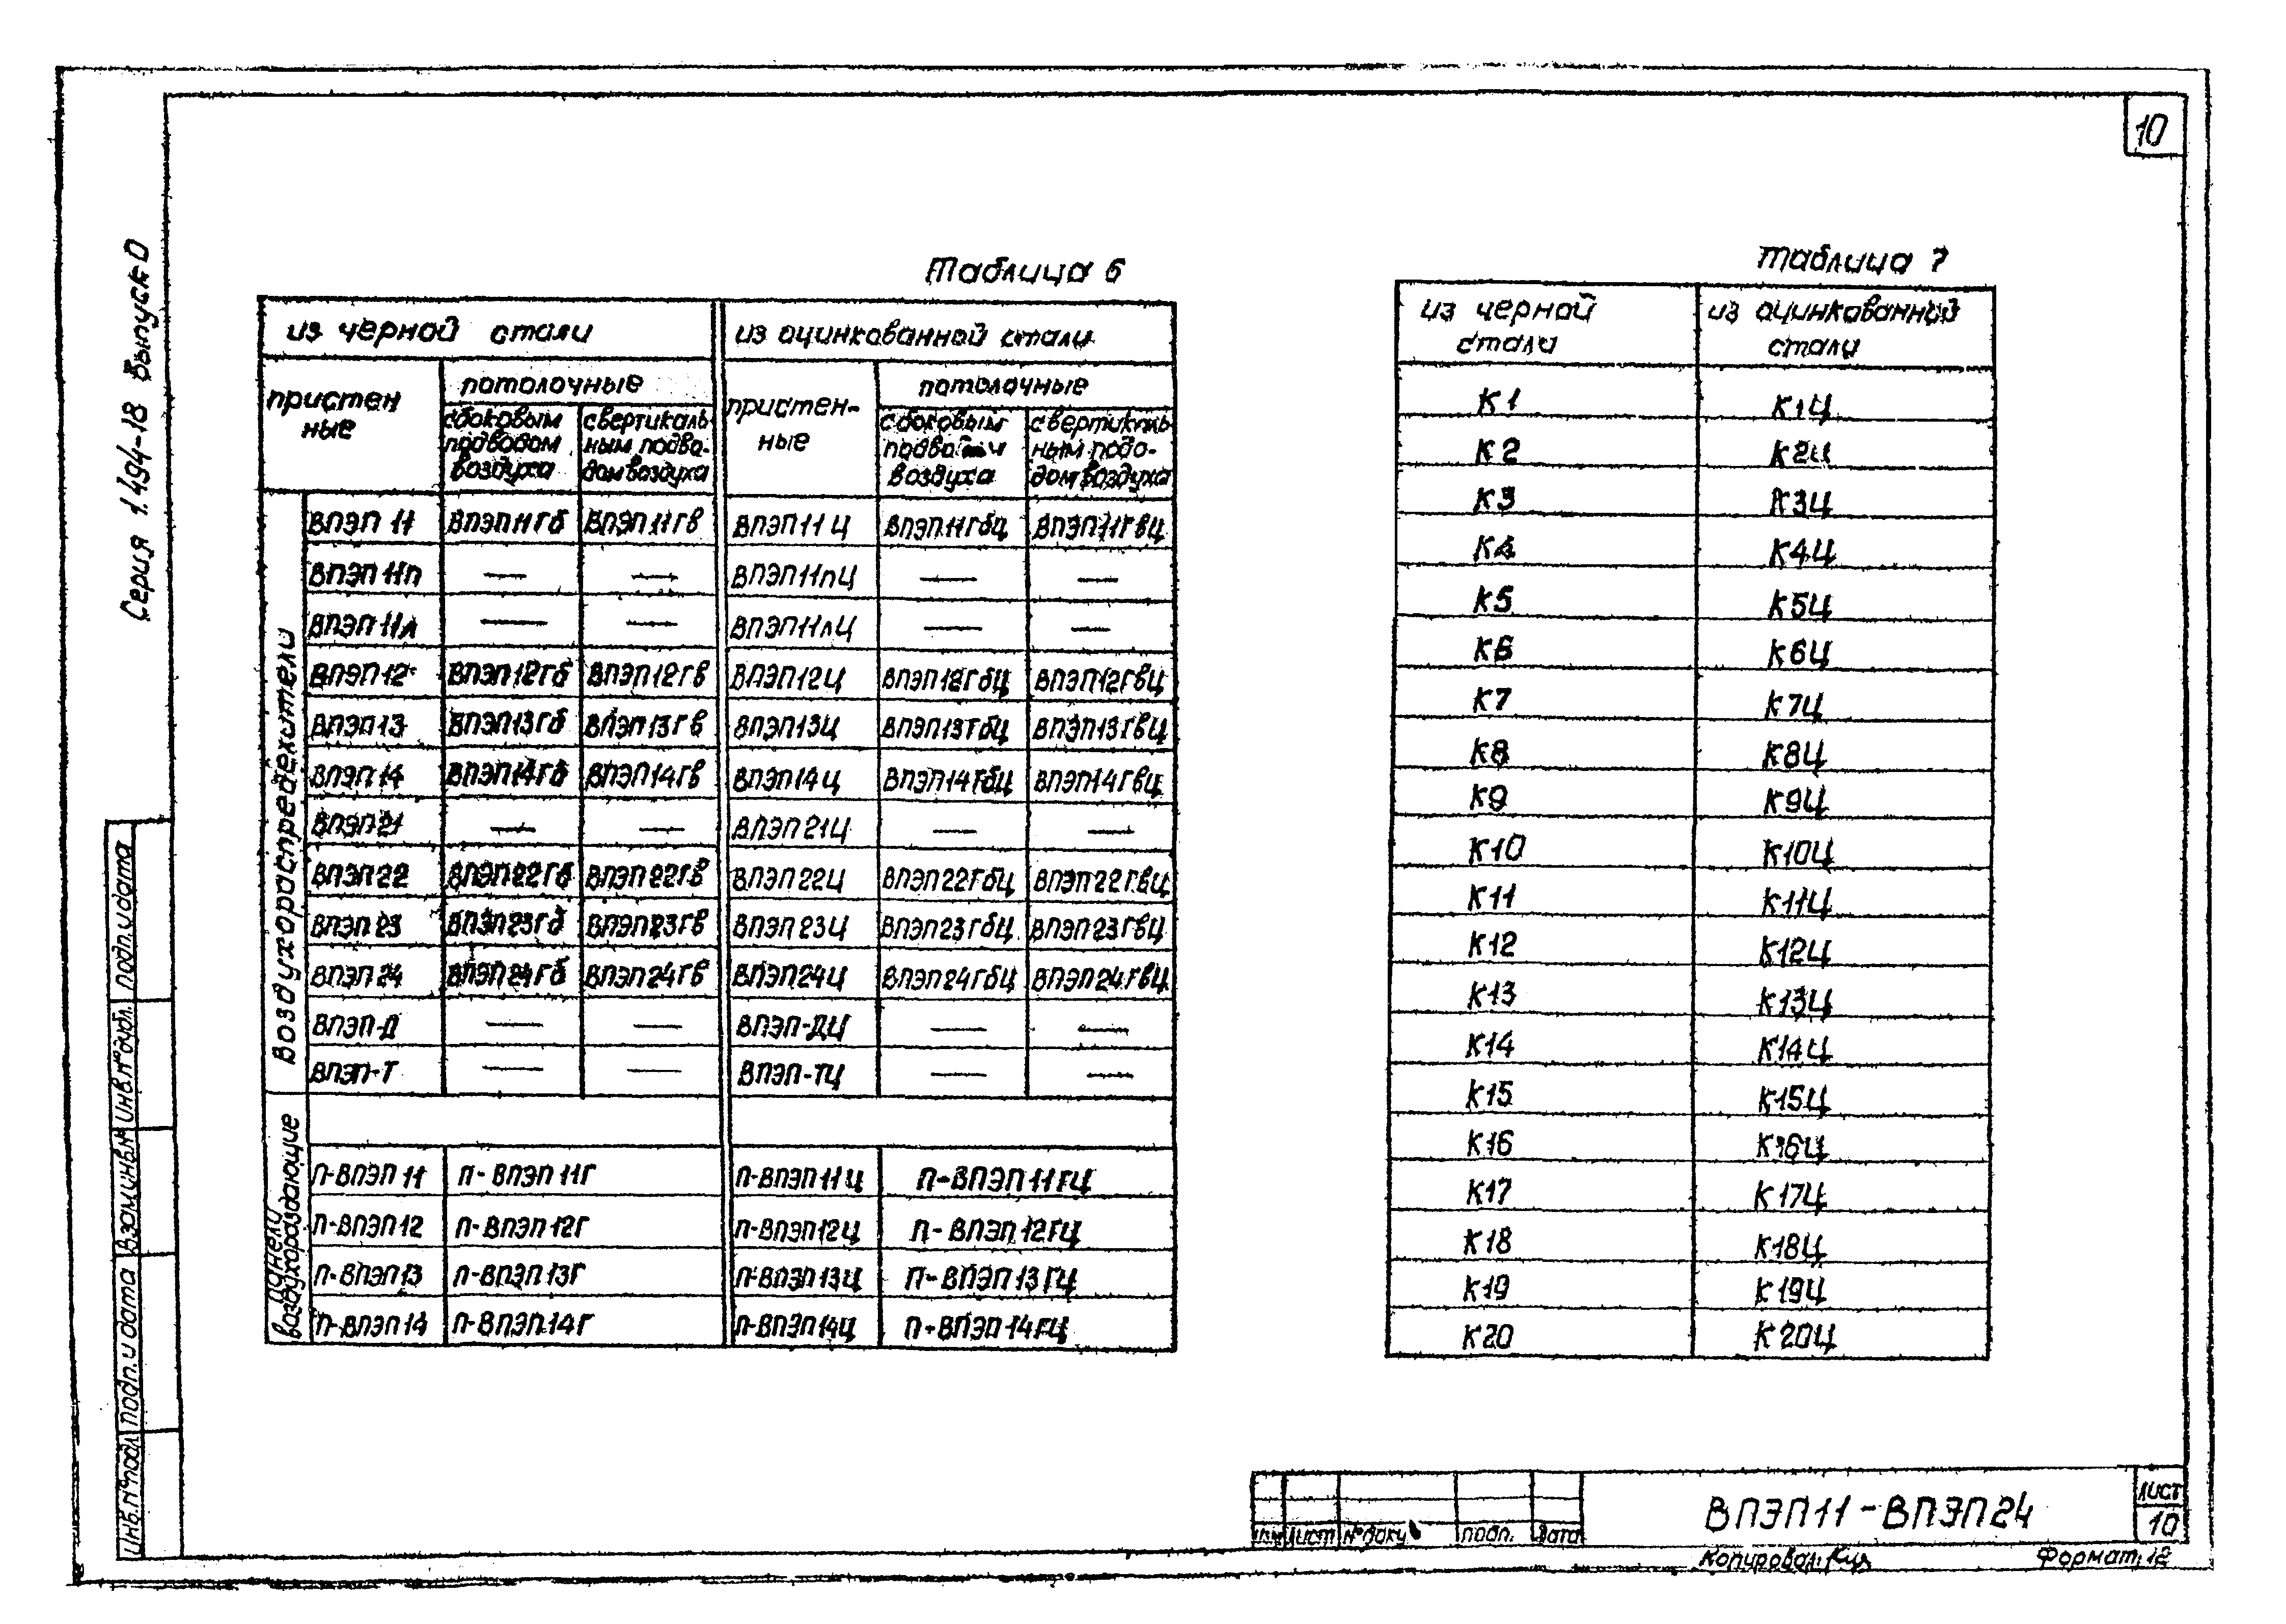 10
Серия 1.494-18 Выпуск 0
Таблица 6
из черной стали
из оцинкованной стали
пристен
ные
потолочные
с боковым
подводом
воздуха
с вертикаль
ным подво-
дом воздуха
пристен-
ные
потолочные
с боковым
воздуха
с вертикаль
ным подо-
дом воздуха
Воздухораспределители
ВПЭП 11 ВПЭП11Гб ВПЭП11Гв ВПЭП11Ц ВПЭП11ГбЦ ВПЭП11ГвЦ
ВПЭП11п — — ВПЭП11пЦ — —
ВПЭП11л — — ВПЭП11лЦ — —
ВПЭП12 ВПЭП12Гб ВПЭП12Гв ВПЭП12Ц ВПЭП12ГбЦ ВПЭП12ГвЦ
ВПЭП13 ВПЭП13Гб ВПЭП13Гв ВПЭП13Ц ВПЭП13ГбЦ ВПЭП13ГвЦ
ВПЭП14 ВПЭП14Гб ВПЭП14Гв ВПЭП14Ц ВПЭП14ГбЦ ВПЭП14ГвЦ
ВПЭП21 — — ВПЭП21Ц — —
ВПЭП22 ВПЭП22Гб ВПЭП22Гв ВПЭП22Ц ВПЭП22ГбЦ ВПЭП22ГвЦ
ВПЭП23 ВПЭП23Гб ВПЭП23Гв ВПЭП23Ц ВПЭП23ГбЦ ВПЭП23ГвЦ
ВПЭП24 ВПЭП24Гб ВПЭП24Гв ВПЭП24Ц ВПЭП24ГбЦ ВПЭП24ГвЦ
ВПЭП-Д — — ВПЭП-ДЦ — —
ВПЭП-Т — — ВПЭП-ТЦ — —
панели
воздухораздающие
П-ВПЭП11 П-ВПЭП11Г П-ВПЭП11Ц П-ВПЭП11ГЦ
П-ВПЭП12 П-ВПЭП12Г П-ВПЭП12Ц П-ВПЭП12ГЦ
П-ВПЭП13 П-ВПЭП13Г П-ВПЭП13Ц П-ВПЭП13ГЦ
П-ВПЭП14 П-ВПЭП14Г П-ВПЭП14Ц П-ВПЭП14ГЦ
Таблица 7
из черной
стали
из оцинкованной
стали
К1 К1Ц
К2 К2Ц
К3 К3Ц
К4 К4Ц
К5 К5Ц
К6 К6Ц
К7 К7Ц
К8 К8Ц
К9 К9Ц
К10 К10Ц
К11 К11Ц
К12 К12Ц
К13 К13Ц
К14 К14Ц
К15 К15Ц
К16 К16Ц
К17 К17Ц
К18 К18Ц
К19 К19Ц
К20 К20Ц
Инв.№подл. Подп. и дата Взам.инв.№ Инв.№дубл. Подп. и дата
Изм Лист №докум Подп. Дата
ВПЭП11-ВПЭП24
Лист
10
Копировал:
Формат: 12